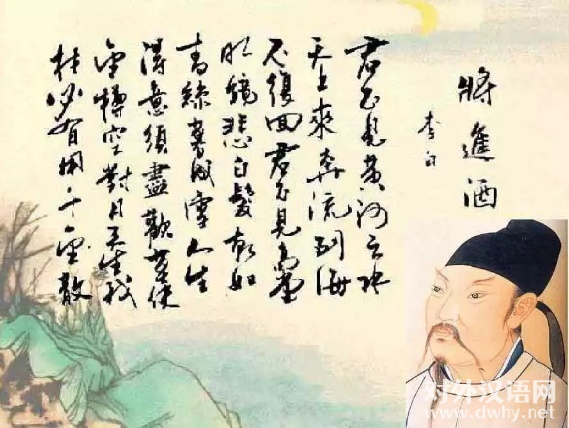 將進酒
李白
君不見黃河之水
天上來奔流到海
不復回君不見高堂
明鏡悲白髮朝如
青絲暮成雪人生
得意須盡歡莫使
金樽空對月天生我
材必有用千金散
对外汉语网
www.dwhy.net